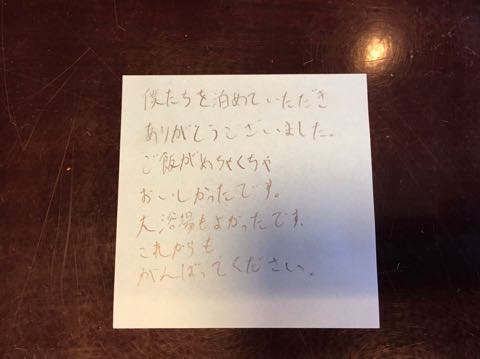 僕たちを泊めていただき
ありがとうございました。
ご飯がめちゃくちゃ
おいしかったです。
大浴場もよかったです.
これからも、
がんばってください。